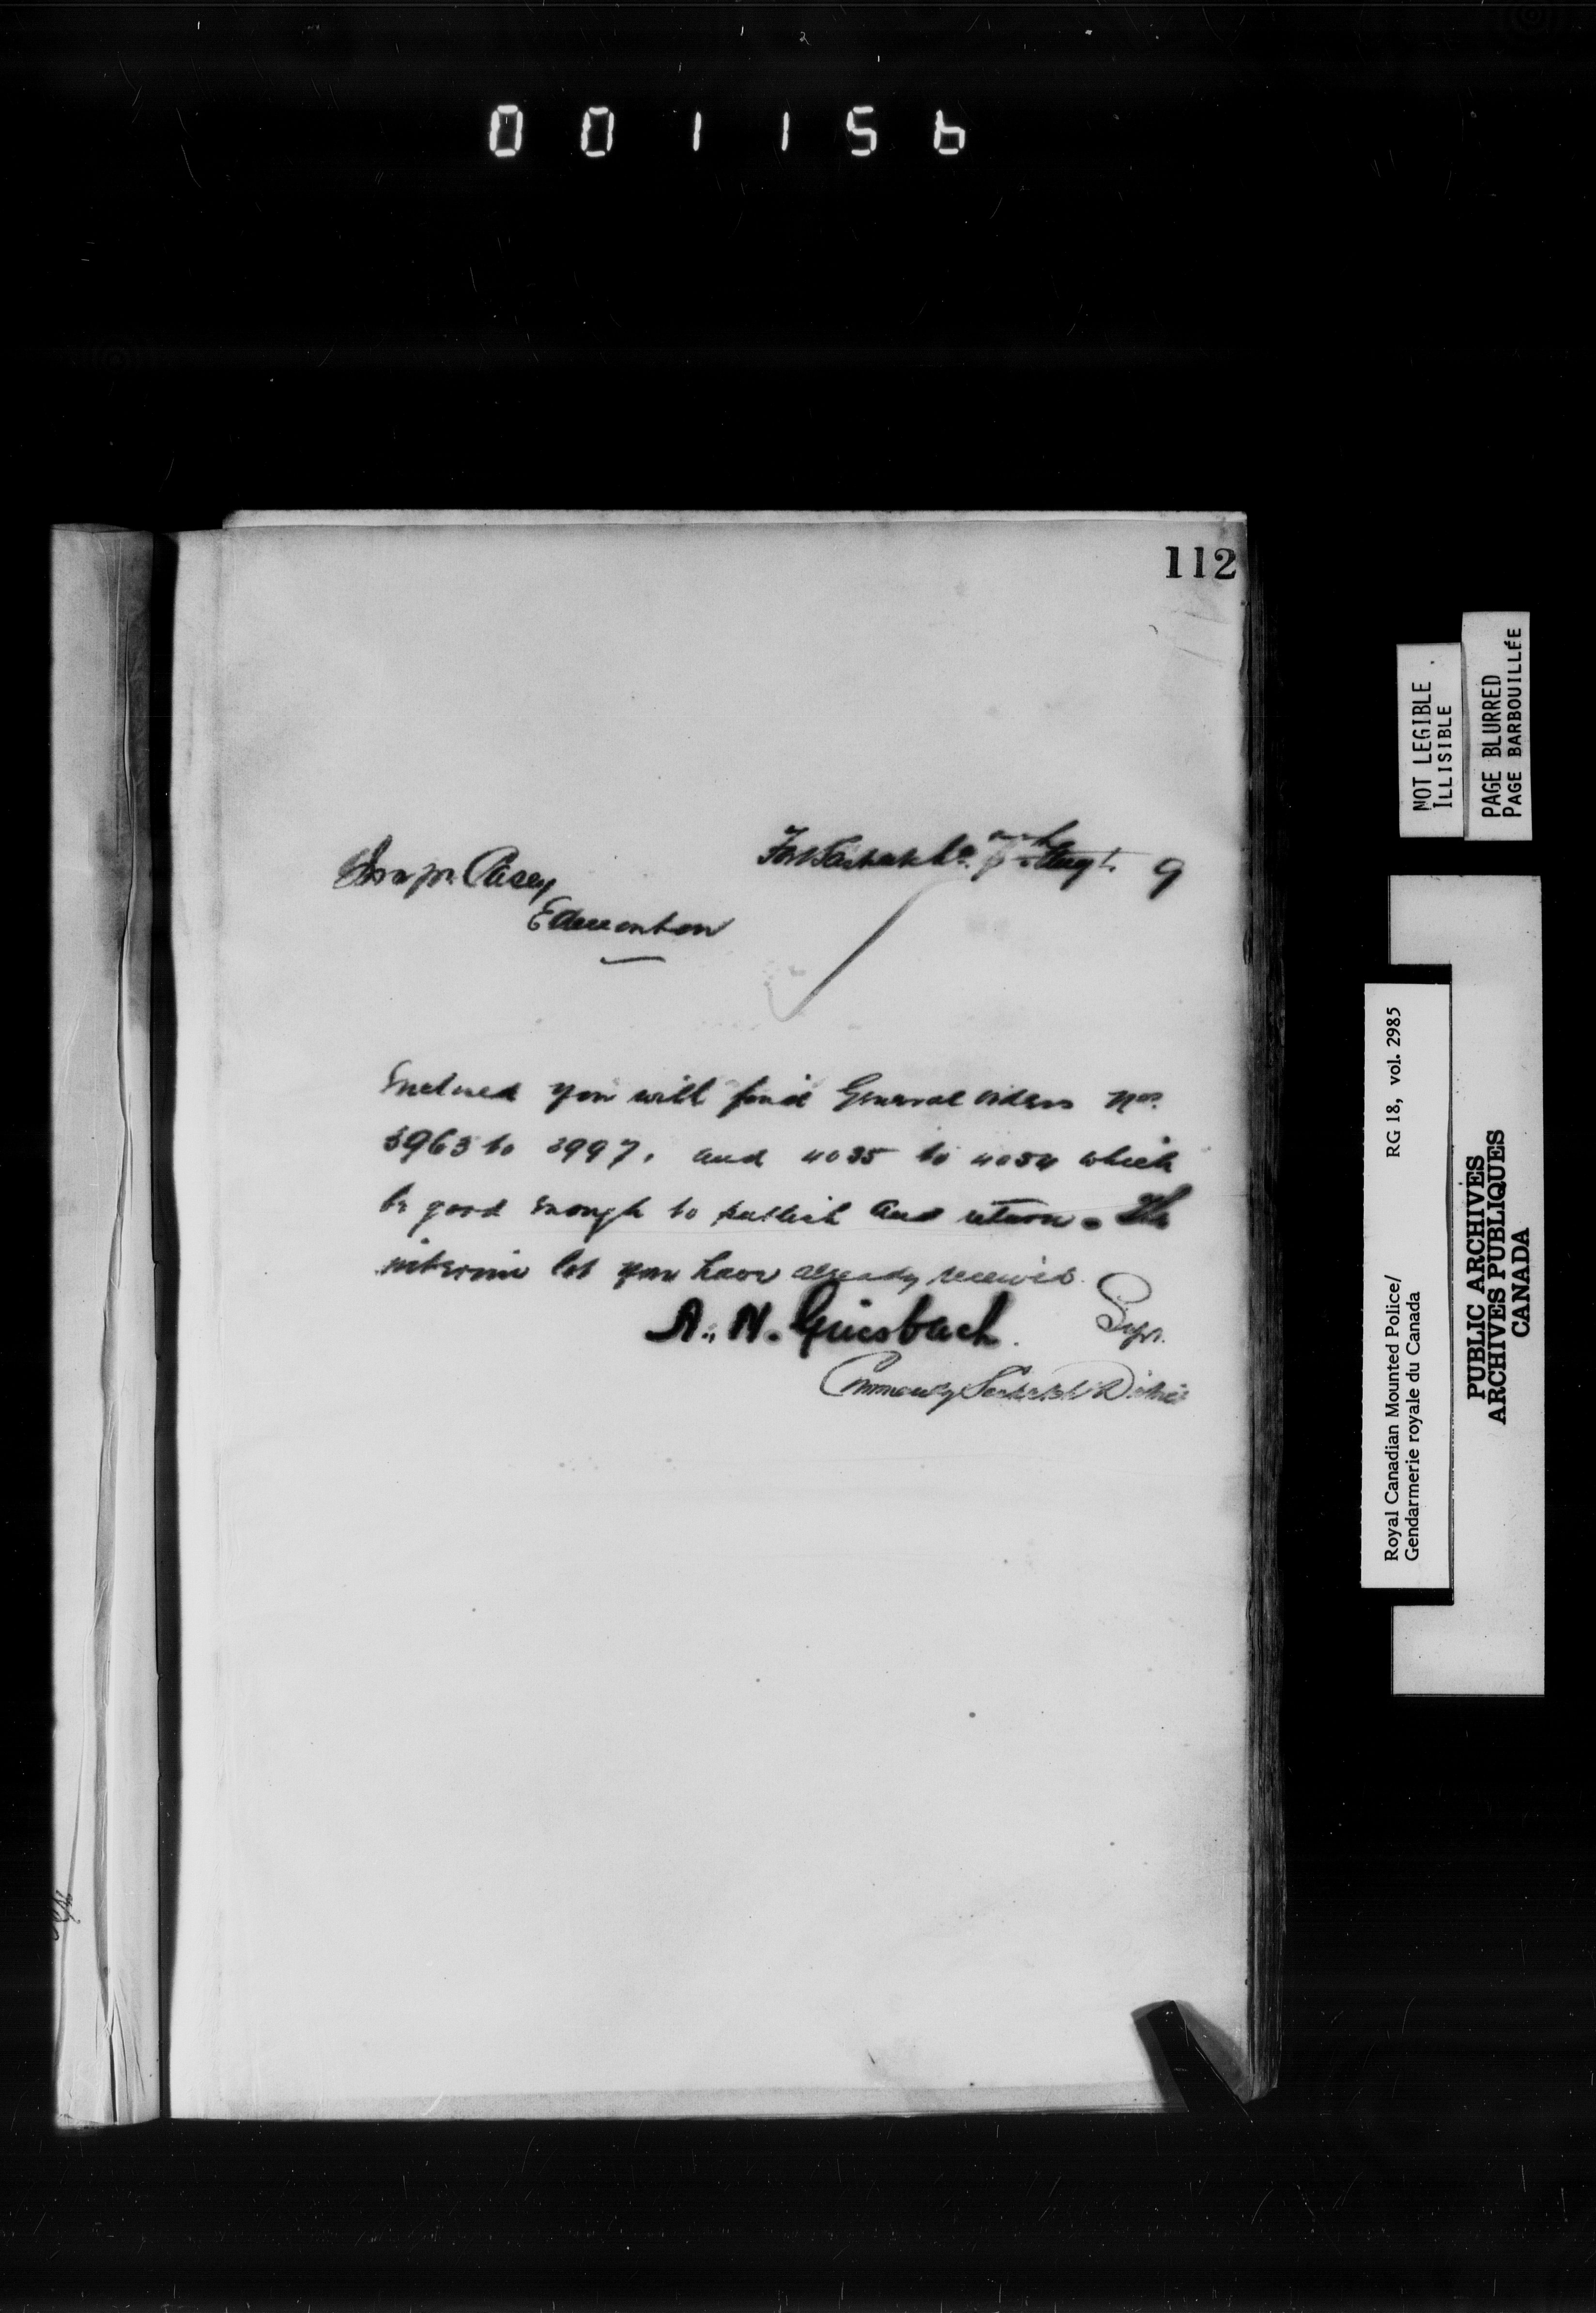 001156
112
Fort Saskatchn. 7th Augt. 9
Insp. Casey
Edmonton
Enclosed you will find General orders Nos.
3963 to 3997, and 4035 to 4054 which
be good enough to publish and return. The
interim lot you have already received.
A. H. Griesbach. Supt.
Commandg Saskatn District
NOT LEGIBLE
ILLISIBLE
PAGE BLURRED
PAGE BARBOUILLÉE
Royal Canadian Mounted Police/ RG 18, vol. 2985
Gendarmerie royale du Canada
PUBLIC ARCHIVES
ARCHIVES PUBLIQUES
CANADA